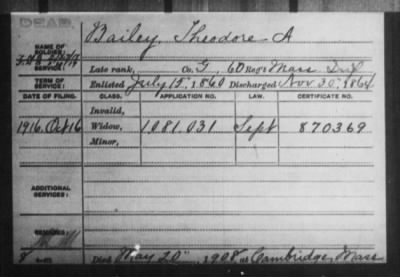 DEAD.
Bailey, Theodore A
NAME OF SOLDIER:
SERVICE:
Late rank, Co. G, 60 Reg't Mass Inf
TERM OF SERVICE: Enlisted July 15, 1864 Discharged Nov 30, 1864
DATE OF FILING. CLASS. APPLICATION NO. LAW. CERTIFICATE NO.
Invalid,
1916, Oct 16 Widow, 1081.031 Sept 870369
Minor,
ADDITIONAL SERVICES:
REMARKS:
Died May 20", 1908, at Cambridge, Mass